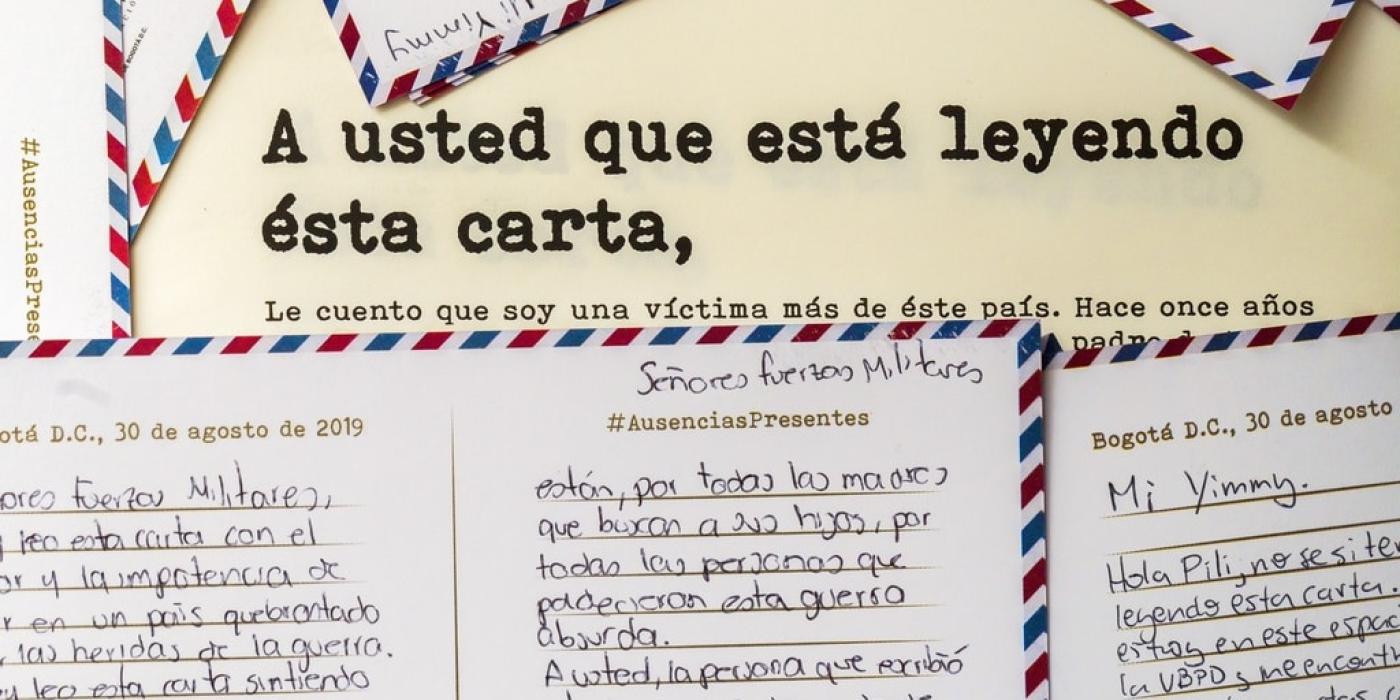 Mi Yimmy
#AusenciasPrese
A usted que está leyendo
ésta carta,
Le cuento que soy una víctima más de éste país. Hace once años
padre
Señores fuerzas Militares
otá D.C., 30 de agosto de 2019
ores Fuerzas Militares,
leo esta carta con el
or y la impotencia de
r en un país quebrantado
las heridas de la guerra.
y leo esta carta sintiendo
#AusenciasPresentes
están, por todas las madres
que buscan a sus hijos, por
todas las personas que
padecieron esta guerra
absurda.
A usted, la persona que escribió
Bogotá D.C., 30 de agosto
Mi Yimmy.
Hola Pili, no se si te
leyendo esta carta.
estoy en este espac
la UBPD, me encont